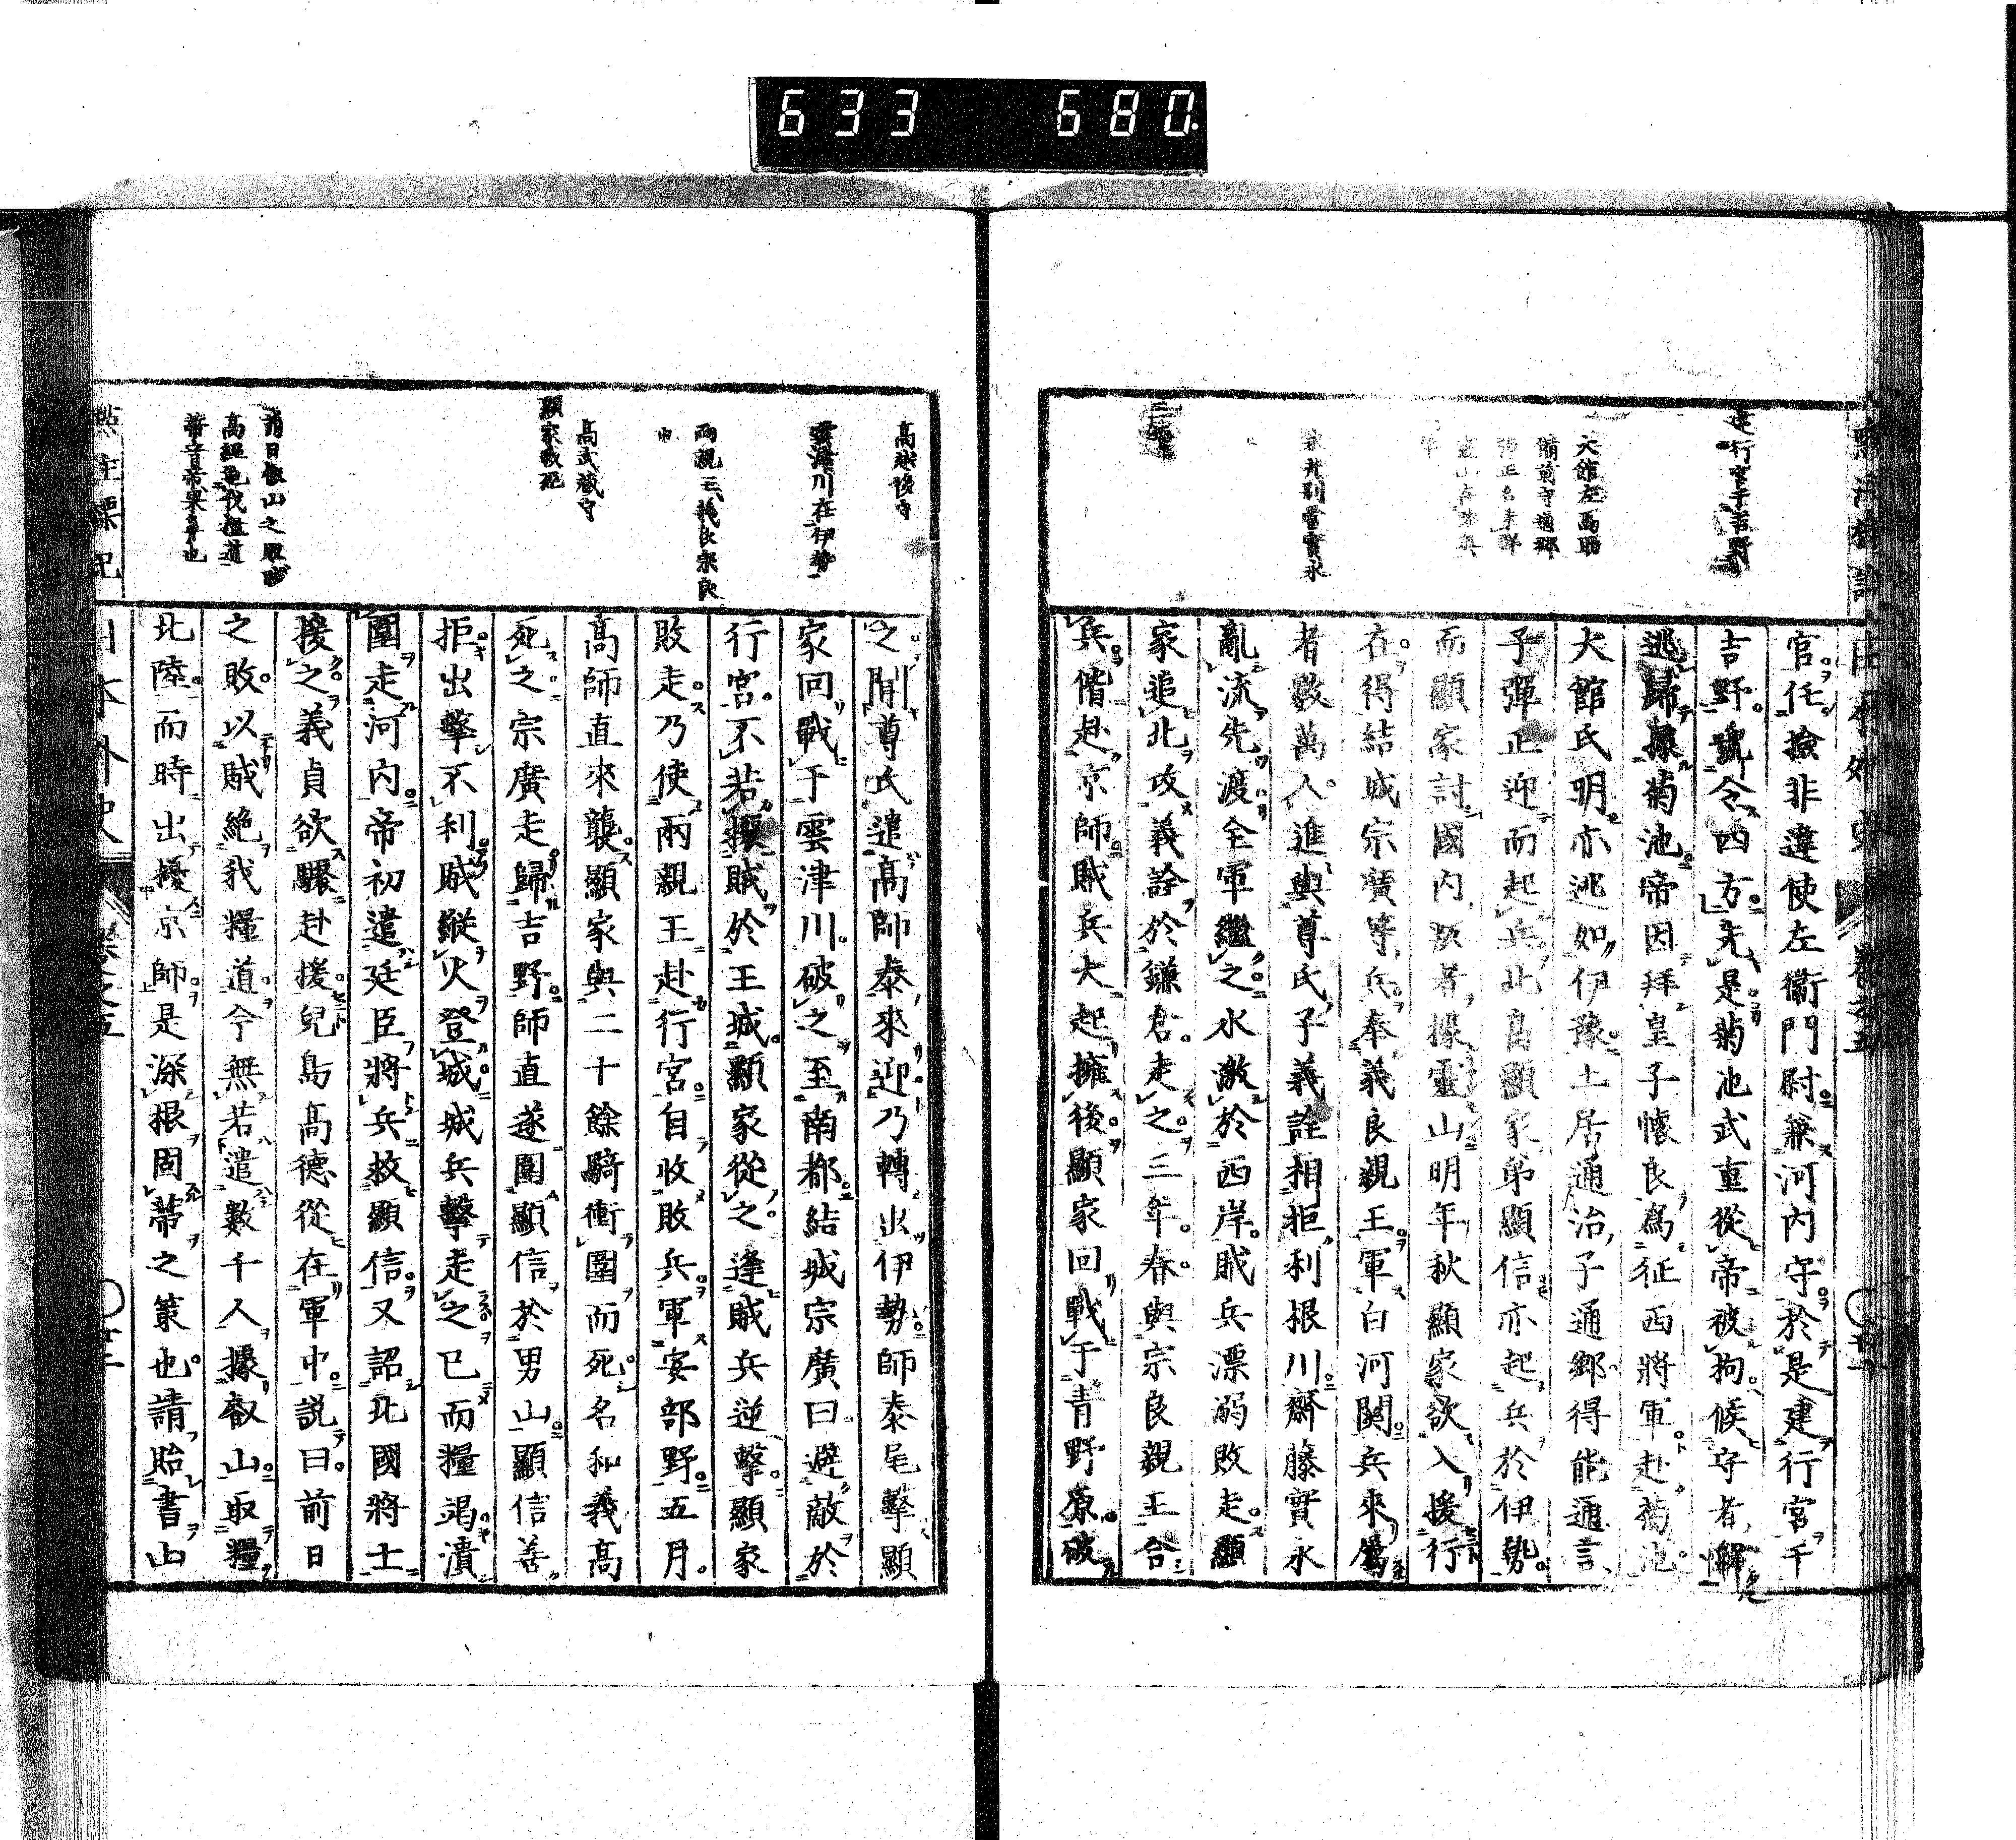 633 680.
建行宮于吉野
大館左馬助
永井別當實永
官任撿非違使左衞門尉兼河内守於是建行宮于
吉野號令四方先是菊池武重從帝被拘候守者懈
逃歸據菊池帝因拜皇子懷良爲征西將軍赴菊池
大館氏明亦逃如伊豫土居通治子通郷得能通言
子彈正迎而起兵北畠顯家弟顯信亦起兵於伊勢
而顯家討國内叛者據靈山明年秋顯家欲入援行
在得結城宗廣等兵奉義良親王軍白河關兵來屬
者數萬人進與尊氏子義詮相拒利根川齋藤實永
亂流先渡全軍繼之水激於西岸賊兵漂溺敗走顯
家追北攻義詮於鎌倉走之三年春與宗良親王合
兵偕赴京師賊兵大起擁後顯家回戰于青野原破
高越後守
雲津川在伊勢
兩親王義良宗良
也
高武藏守
顯家戰死
之聞尊氏遣高師泰來迎乃轉出伊勢師泰尾擊顯
家回戰于雲津川破之至南都結城宗廣曰避敵於
行宮不若攘賊於王城顯家從之逢賊兵逆擊顯家
敗走乃使兩親王赴行宮自收敗兵軍安部野五月
高師直來襲顯家與二十餘騎衝圍而死名和義高
死之宗廣走歸吉野師直遂圍顯信於男山顯信善
拒出擊不利賊縱火登城城兵擊走之已而糧竭潰
圍走河内帝初遣廷臣將兵救顯信又詔北國將士
援之義貞欲驟赴援兒島高德從在軍中説曰前日
之敗以賊絶我糧道今無若遣數千人據叡山取糧
北陸而時出擾京師是深根固蔕之策也請貽書山